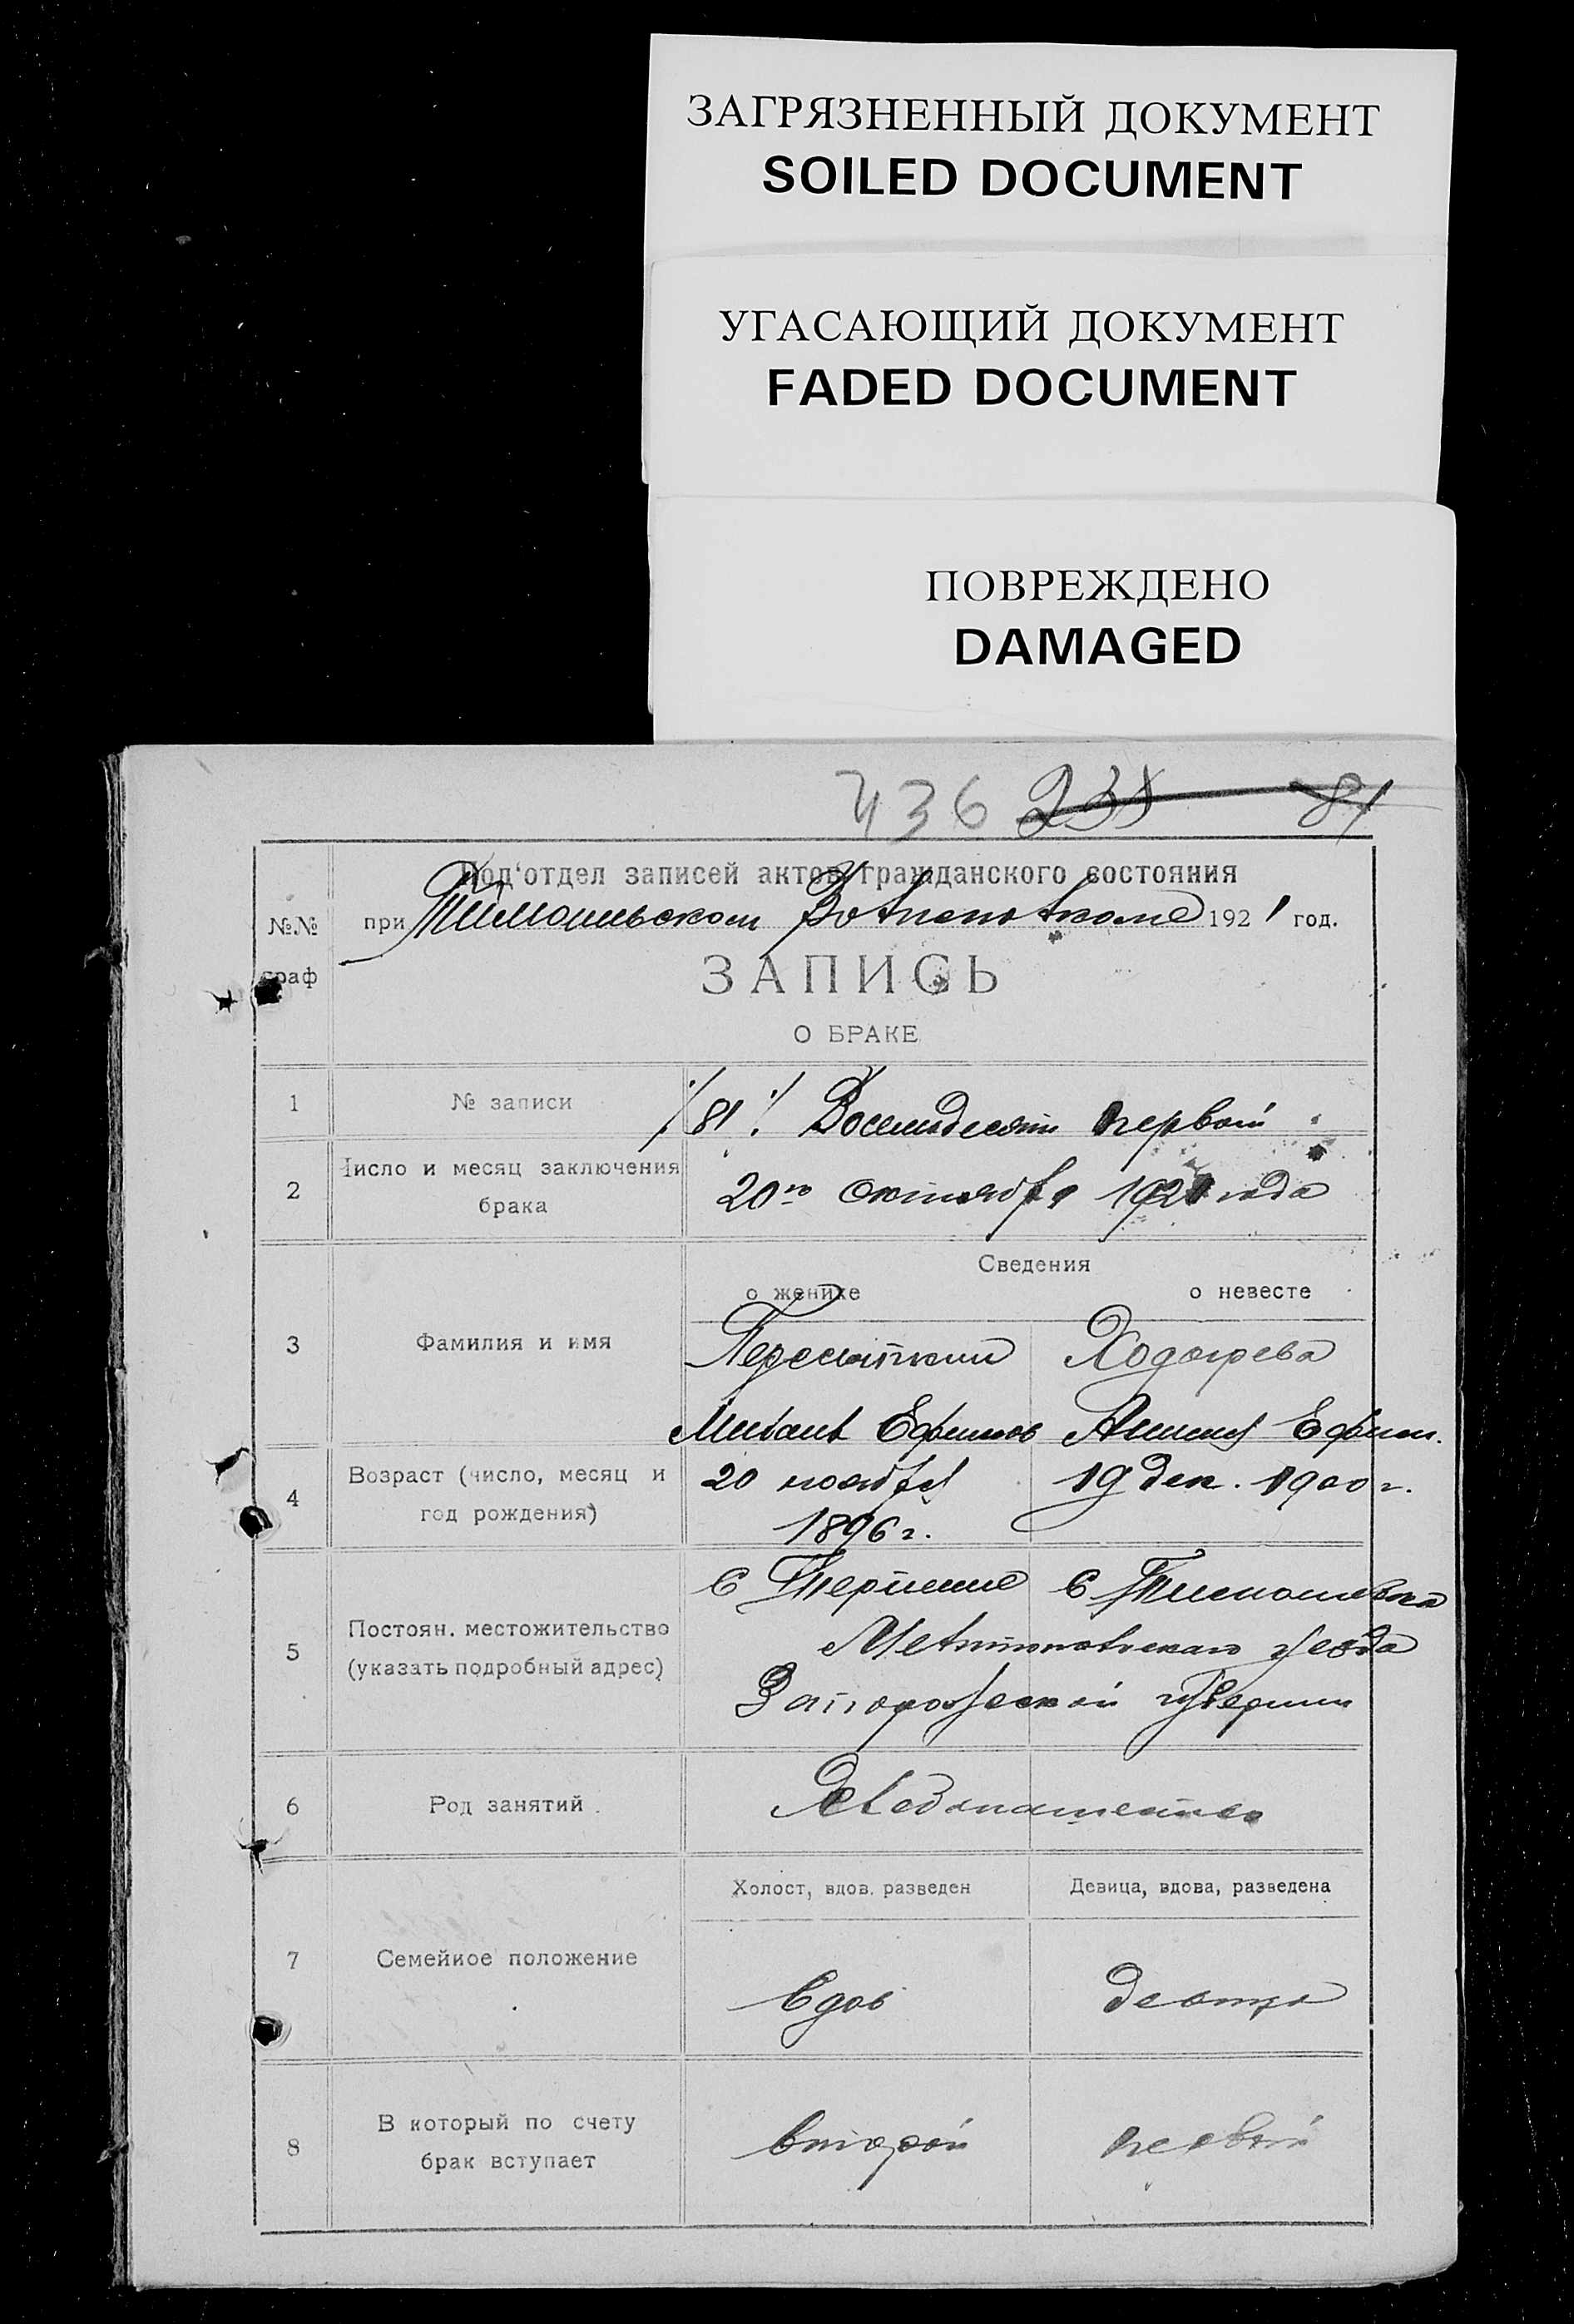 ЗАГРЯЗНЕННЫЙ ДОКУМЕНТ
SOILED DOCUMENT
УГАСАЮЩИЙ ДОКУМЕНТ
FADED DOCUMENT
ПОВРЕЖДЕНО
DAMAGED
436 235 81
Под'отдел записей актов гражданского состояния
№№ граф
при Волисполкоме 1921 год.
ЗАПИСЬ
О БРАКЕ
1 № записи 81 Восемьдесят первый
2 Число и месяц заключения брака
20го Октября 1921 года
Сведения
о женихе о невесте
3 Фамилия и имя
Ефимов Ефим.
4 Возраст (число, месяц и год рождения)
20 ноября 19 дек. 1900 г.
1896 г.
5 Постоян. местожительство (указать подробный адрес)
С Терпение С Тимошевка
Мелитопольского уезда
Запорожской губернии
6 Род занятий
Хлебопашество
Холост, вдов. разведен Девица, вдова, разведена
7 Семейное положение
Вдов девица
8 В который по счету брак вступает
второй первый